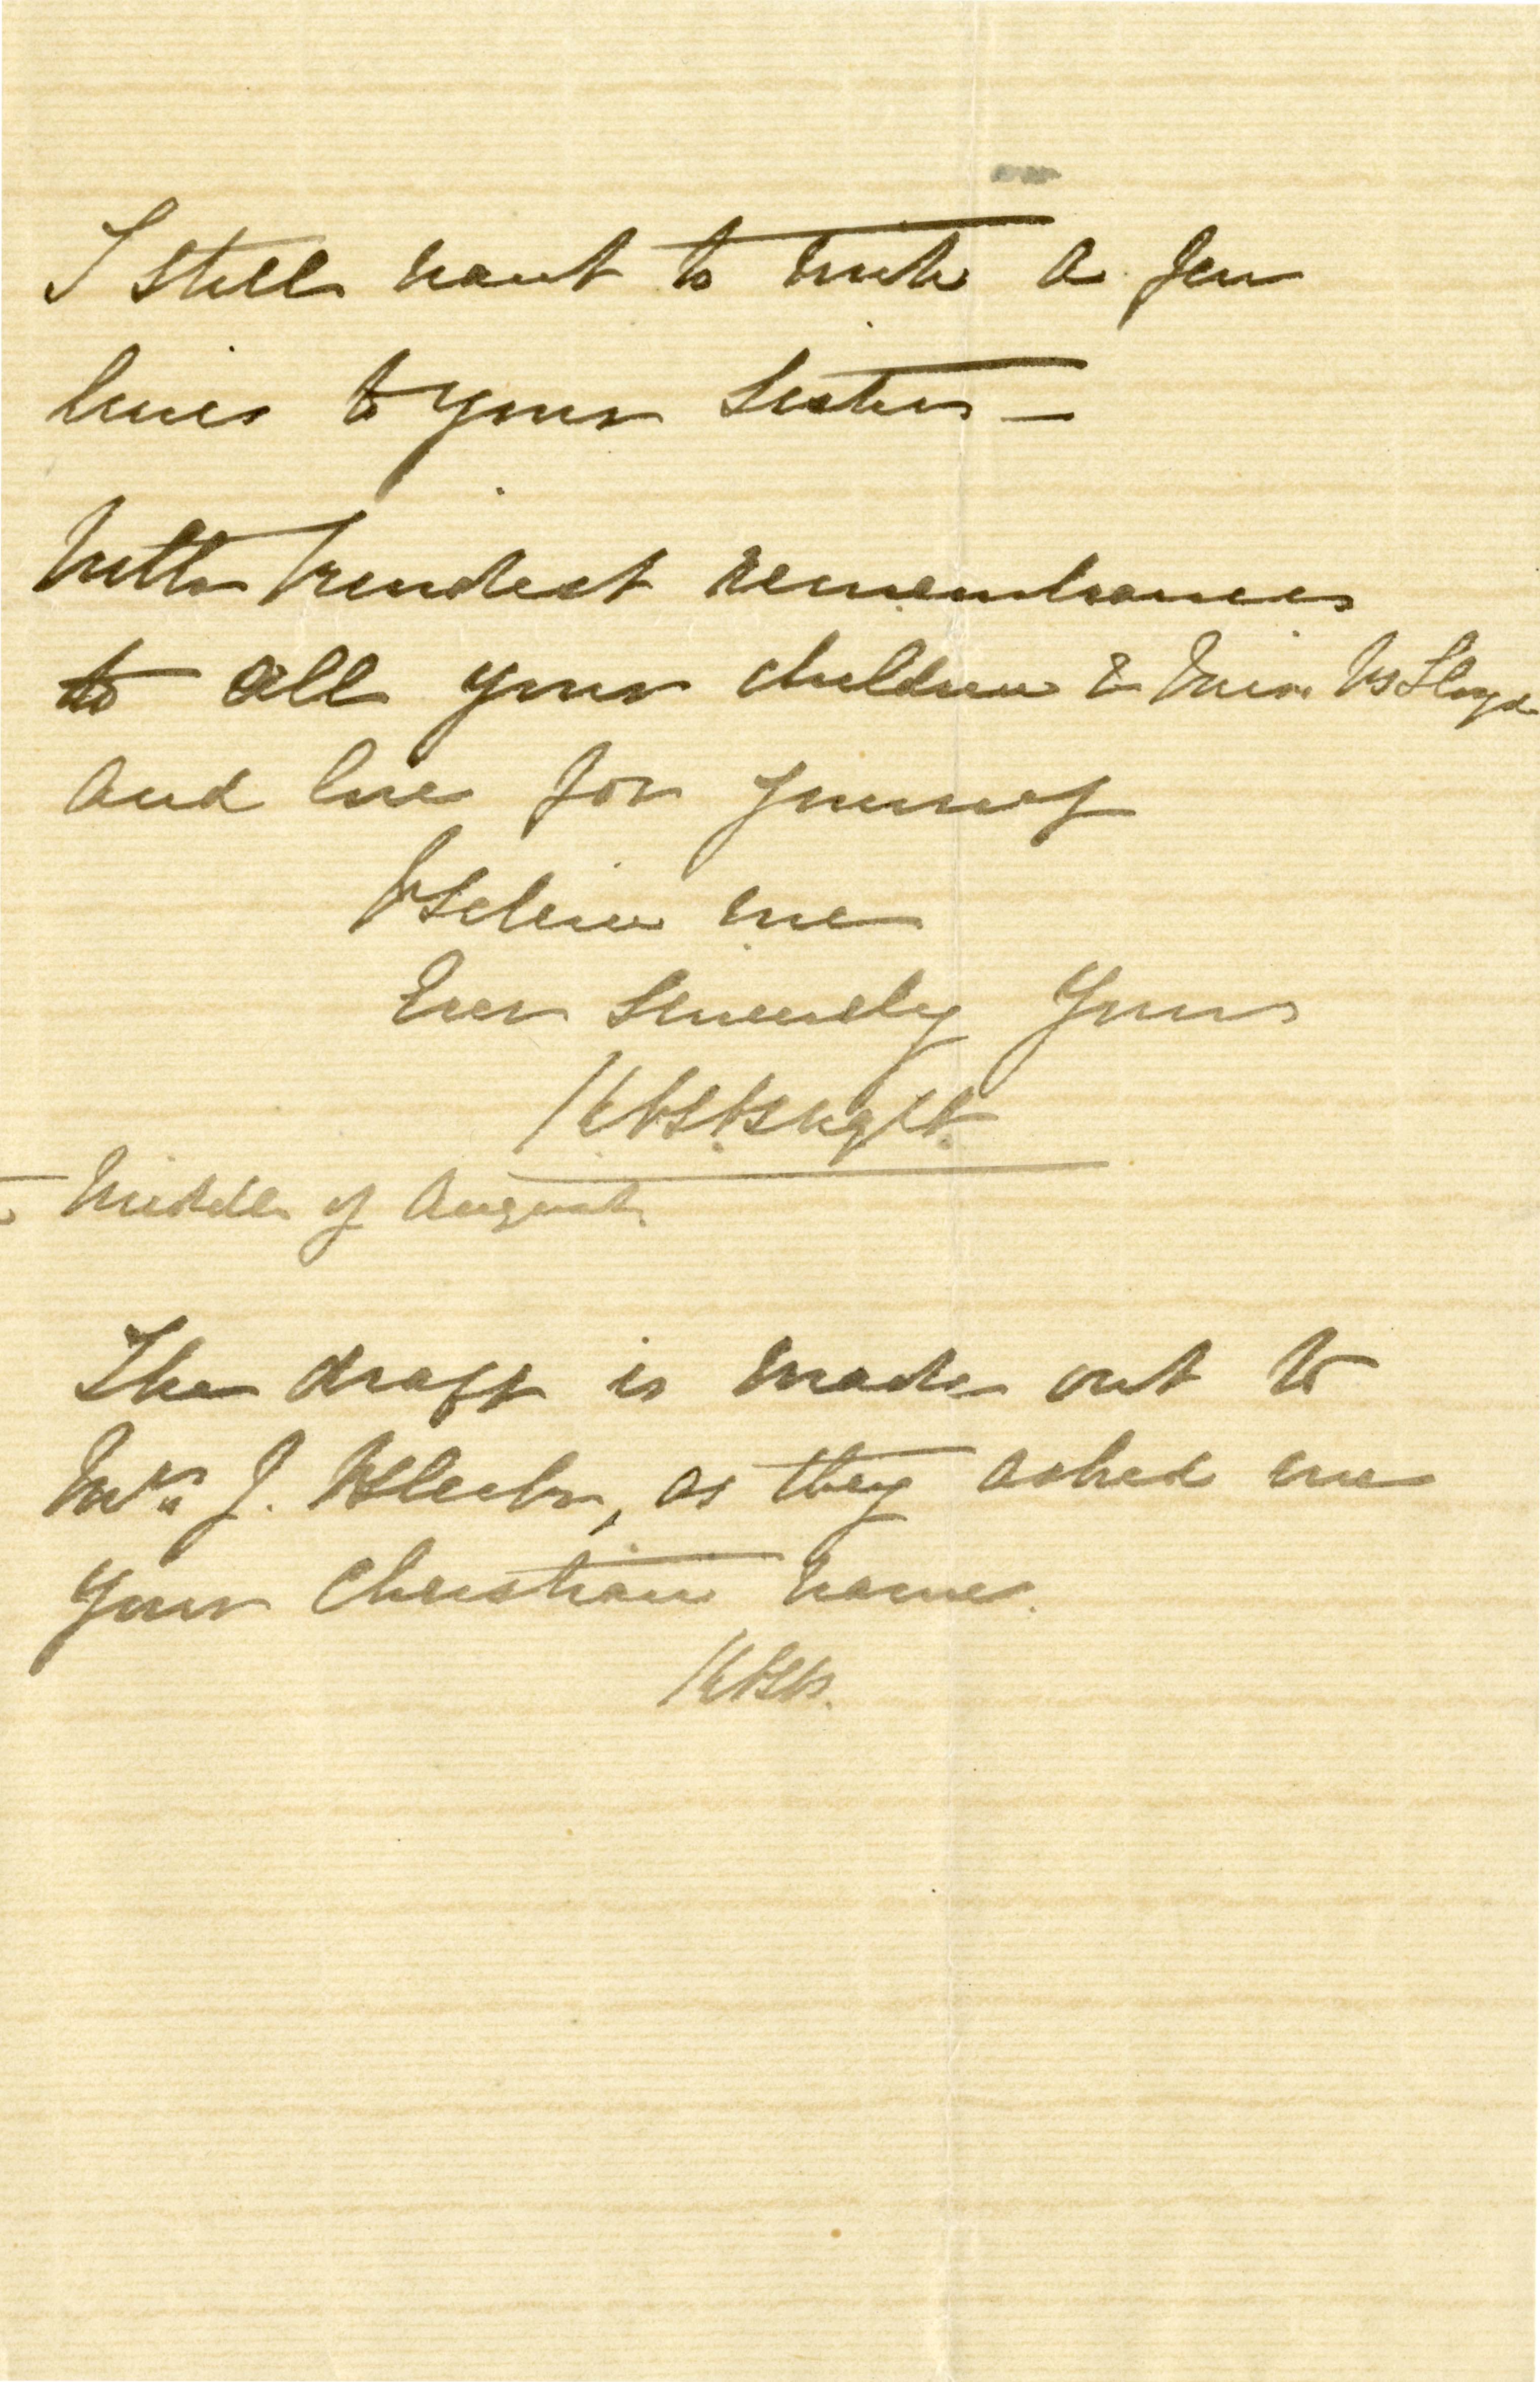 I still want to write a few
lines to your Sisters —
With kindest remembrances
to all your children & Miss
and love for yourself
Believe me
Ever Sincerely Yours
Middle of August.
The draft is made out to
Mrs. J. as they asked me
your Christian name.